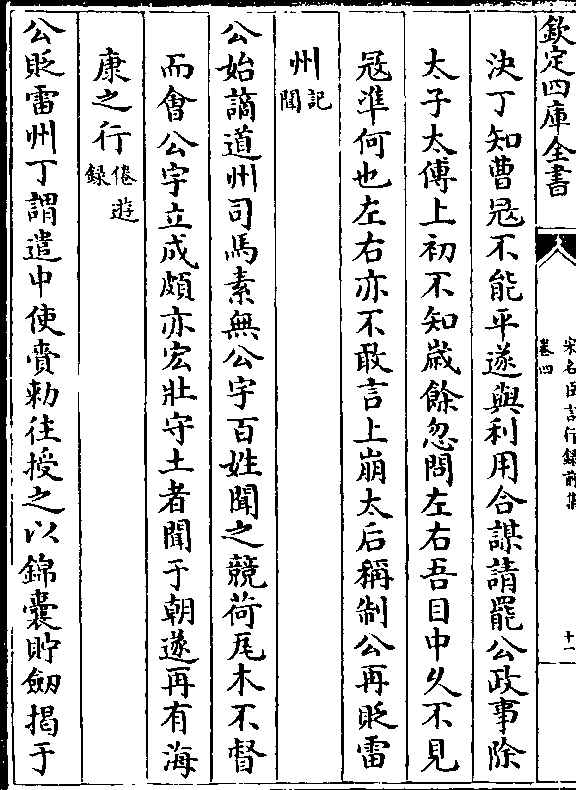 欽定四庫全書
宋名臣言行錄前集
卷四
十一
決丁知曹冦不能平遂與利用合謀請罷公政事除
太子太傅上初不知嵗餘忽問左右吾目中久不見
冦準何也左右亦不敢言上崩太后稱制公再貶雷
州記聞
公始謫道州司馬素無公宇百姓聞之競荷瓦木不督
而會公宇立成頗亦宏壯守土者聞于朝遂再有海
康之行倦遊錄
公貶雷州丁謂遣中使賫勅往授之以錦囊貯劒揭于